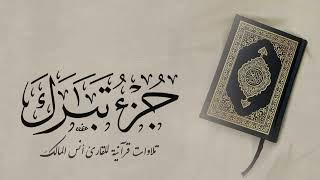 جُزْءُ تَبَارَكَ
تلاوات قرآنية للقارئ أنس المالك